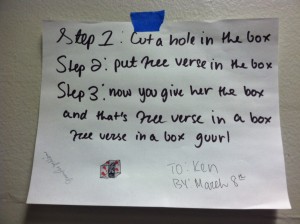 Step 1: Cut a hole in the box
Step 2: put free verse in the box
Step 3: now you give her the box
and that's free verse in a box
free verse in a box guurl
TO: Ken
BY: March 8th